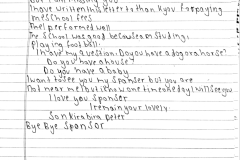 I have written this letter to than k you for paying
me school fees
me I performed well
me school was good because am studing,
playing football.
I have my question. Do you have a dog or a horse?
Do you have a house
Do you have a baby
I want to see my sponser but you are
not near me but i know one time one day I will see you
I love you sponser
I remain your lovely.
Son kirabira peter
Bye Bye Sponsor